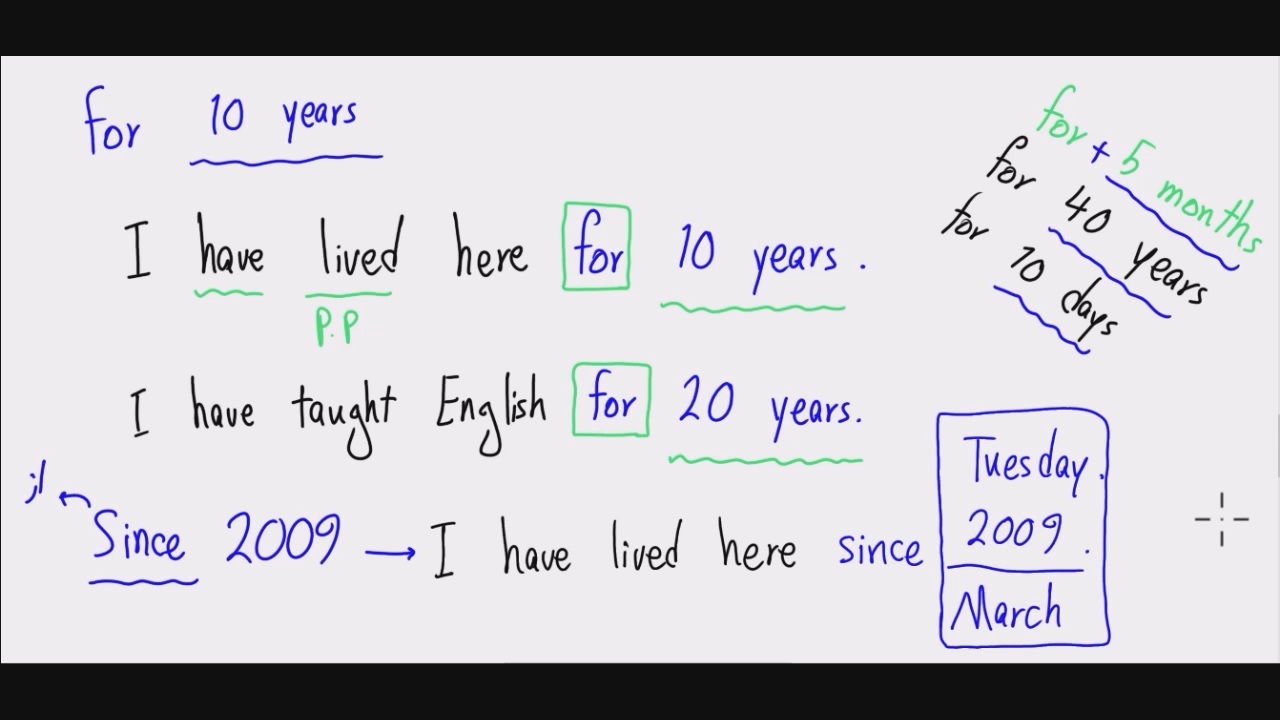 for 10 years
for + 5 months
for 40 years
for 10 days
I have lived here for 10 years.
P.P
I have taught English for 20 years.
از
Since 2009 → I have lived here since
Tuesday.
2009.
March